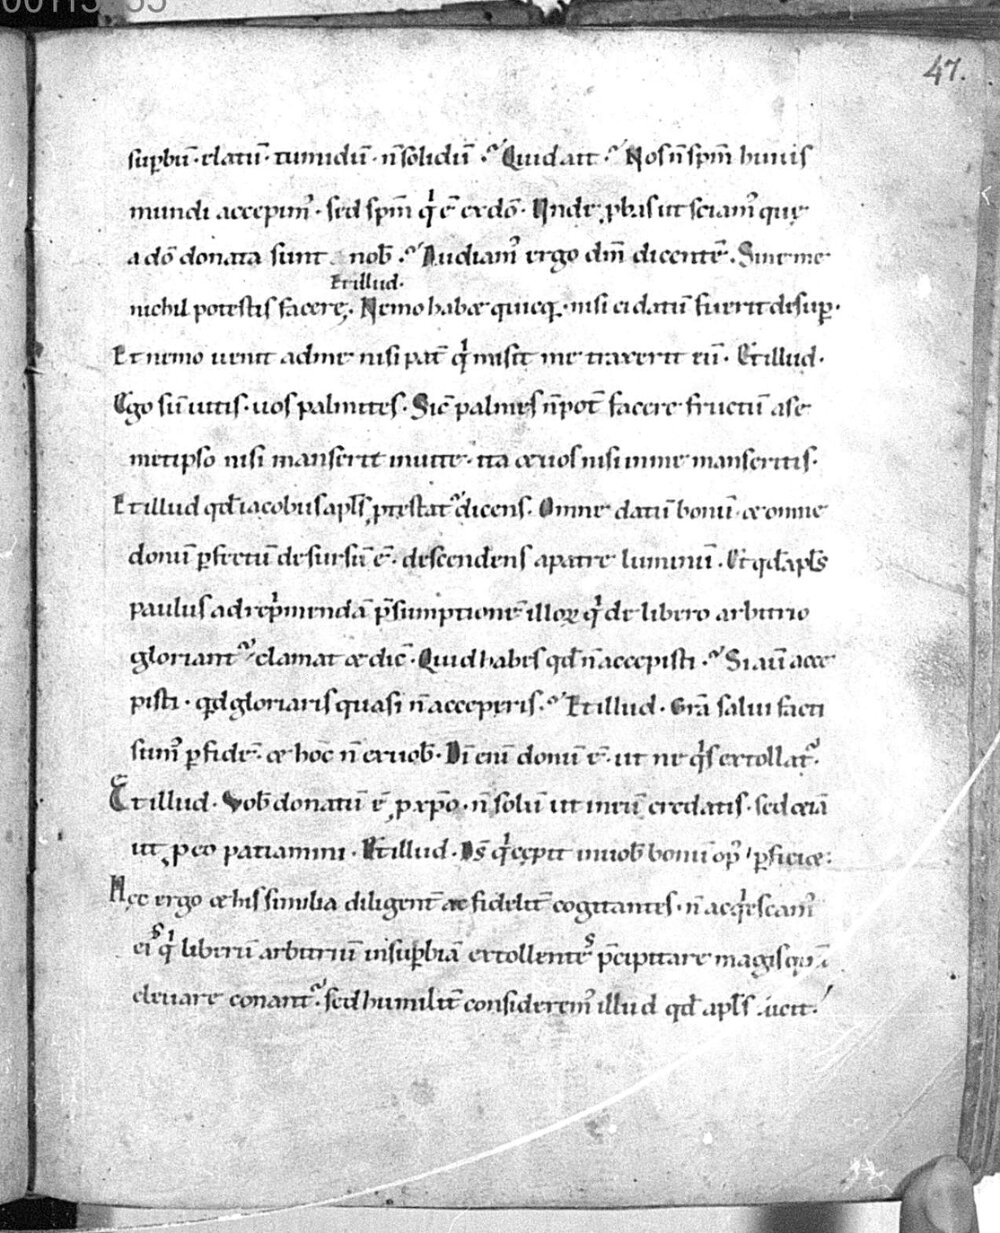 47.
suꝑbū· elatū· tumidū· n̄ solidū ·? Quid ait ·? Nos n̄ spm̄ huius
mundi accepim᷒· sed spm̄ qͥ ē ex dō· Unde ꝓbas ut sciam᷒ quę
a dō donata sunt nob̄ ·? Audiam᷒ ergo dn̄m dicentē· Sine me
Et illud·
nichil potestis facere· Nemo habet quicq̄· nisi ei datū fuerit desuꝑ·
Et nemo uenit ad me nisi pat̄ qͥ misit me traxerit eū· Et illud·
Ego sū uitis· uos palmites· Sic̄ palmes n̄ pot̄ facere fructū a se
metipso nisi manserit in uite· ita & uos nisi in me manseritis·
Et illud qđ iacobus apl̄s prestat᷒ dicens· Omne datū bonū· & omne
donū ꝑfectū desursū ē· descendens a patre luminū· Et qđ apl̄s
paulus ad repͥmendā p̄sumptionē illoꝝ qͥ de libero arbitrio
gloriant᷒ clamat & dic̄· Quid habes qđ n̄ accepisti ·? Si aū acce
pisti· qd gloriaris quasi n̄ acceperis ·? Et illud· Gr̄a salui facti
sum᷒ ꝑ fidē· & hoc n̄ ex uob̄· Dī enī donū ē· ut ne qͥs extollat᷒·
Et illud· Vob̄ donatū ē ꝓ xp̄o· n̄ solū ut in eū credatis· sed etiā
ut ꝓ eo patiamini· Et illud· Ds̄ qͥ cępit in uob̄ bonū op᷒ ꝑficiet:
Hęc ergo & his similia diligent̄ ac fidelit̄ cogitantes· n̄ acqͥescam᷒
eis qͥ liberū arbitriū in suꝑbiā extollentes p̄cipitare magis quā
eleuare conant᷒· sed humilit̄ considerem᷒ illud qđ apl̄s